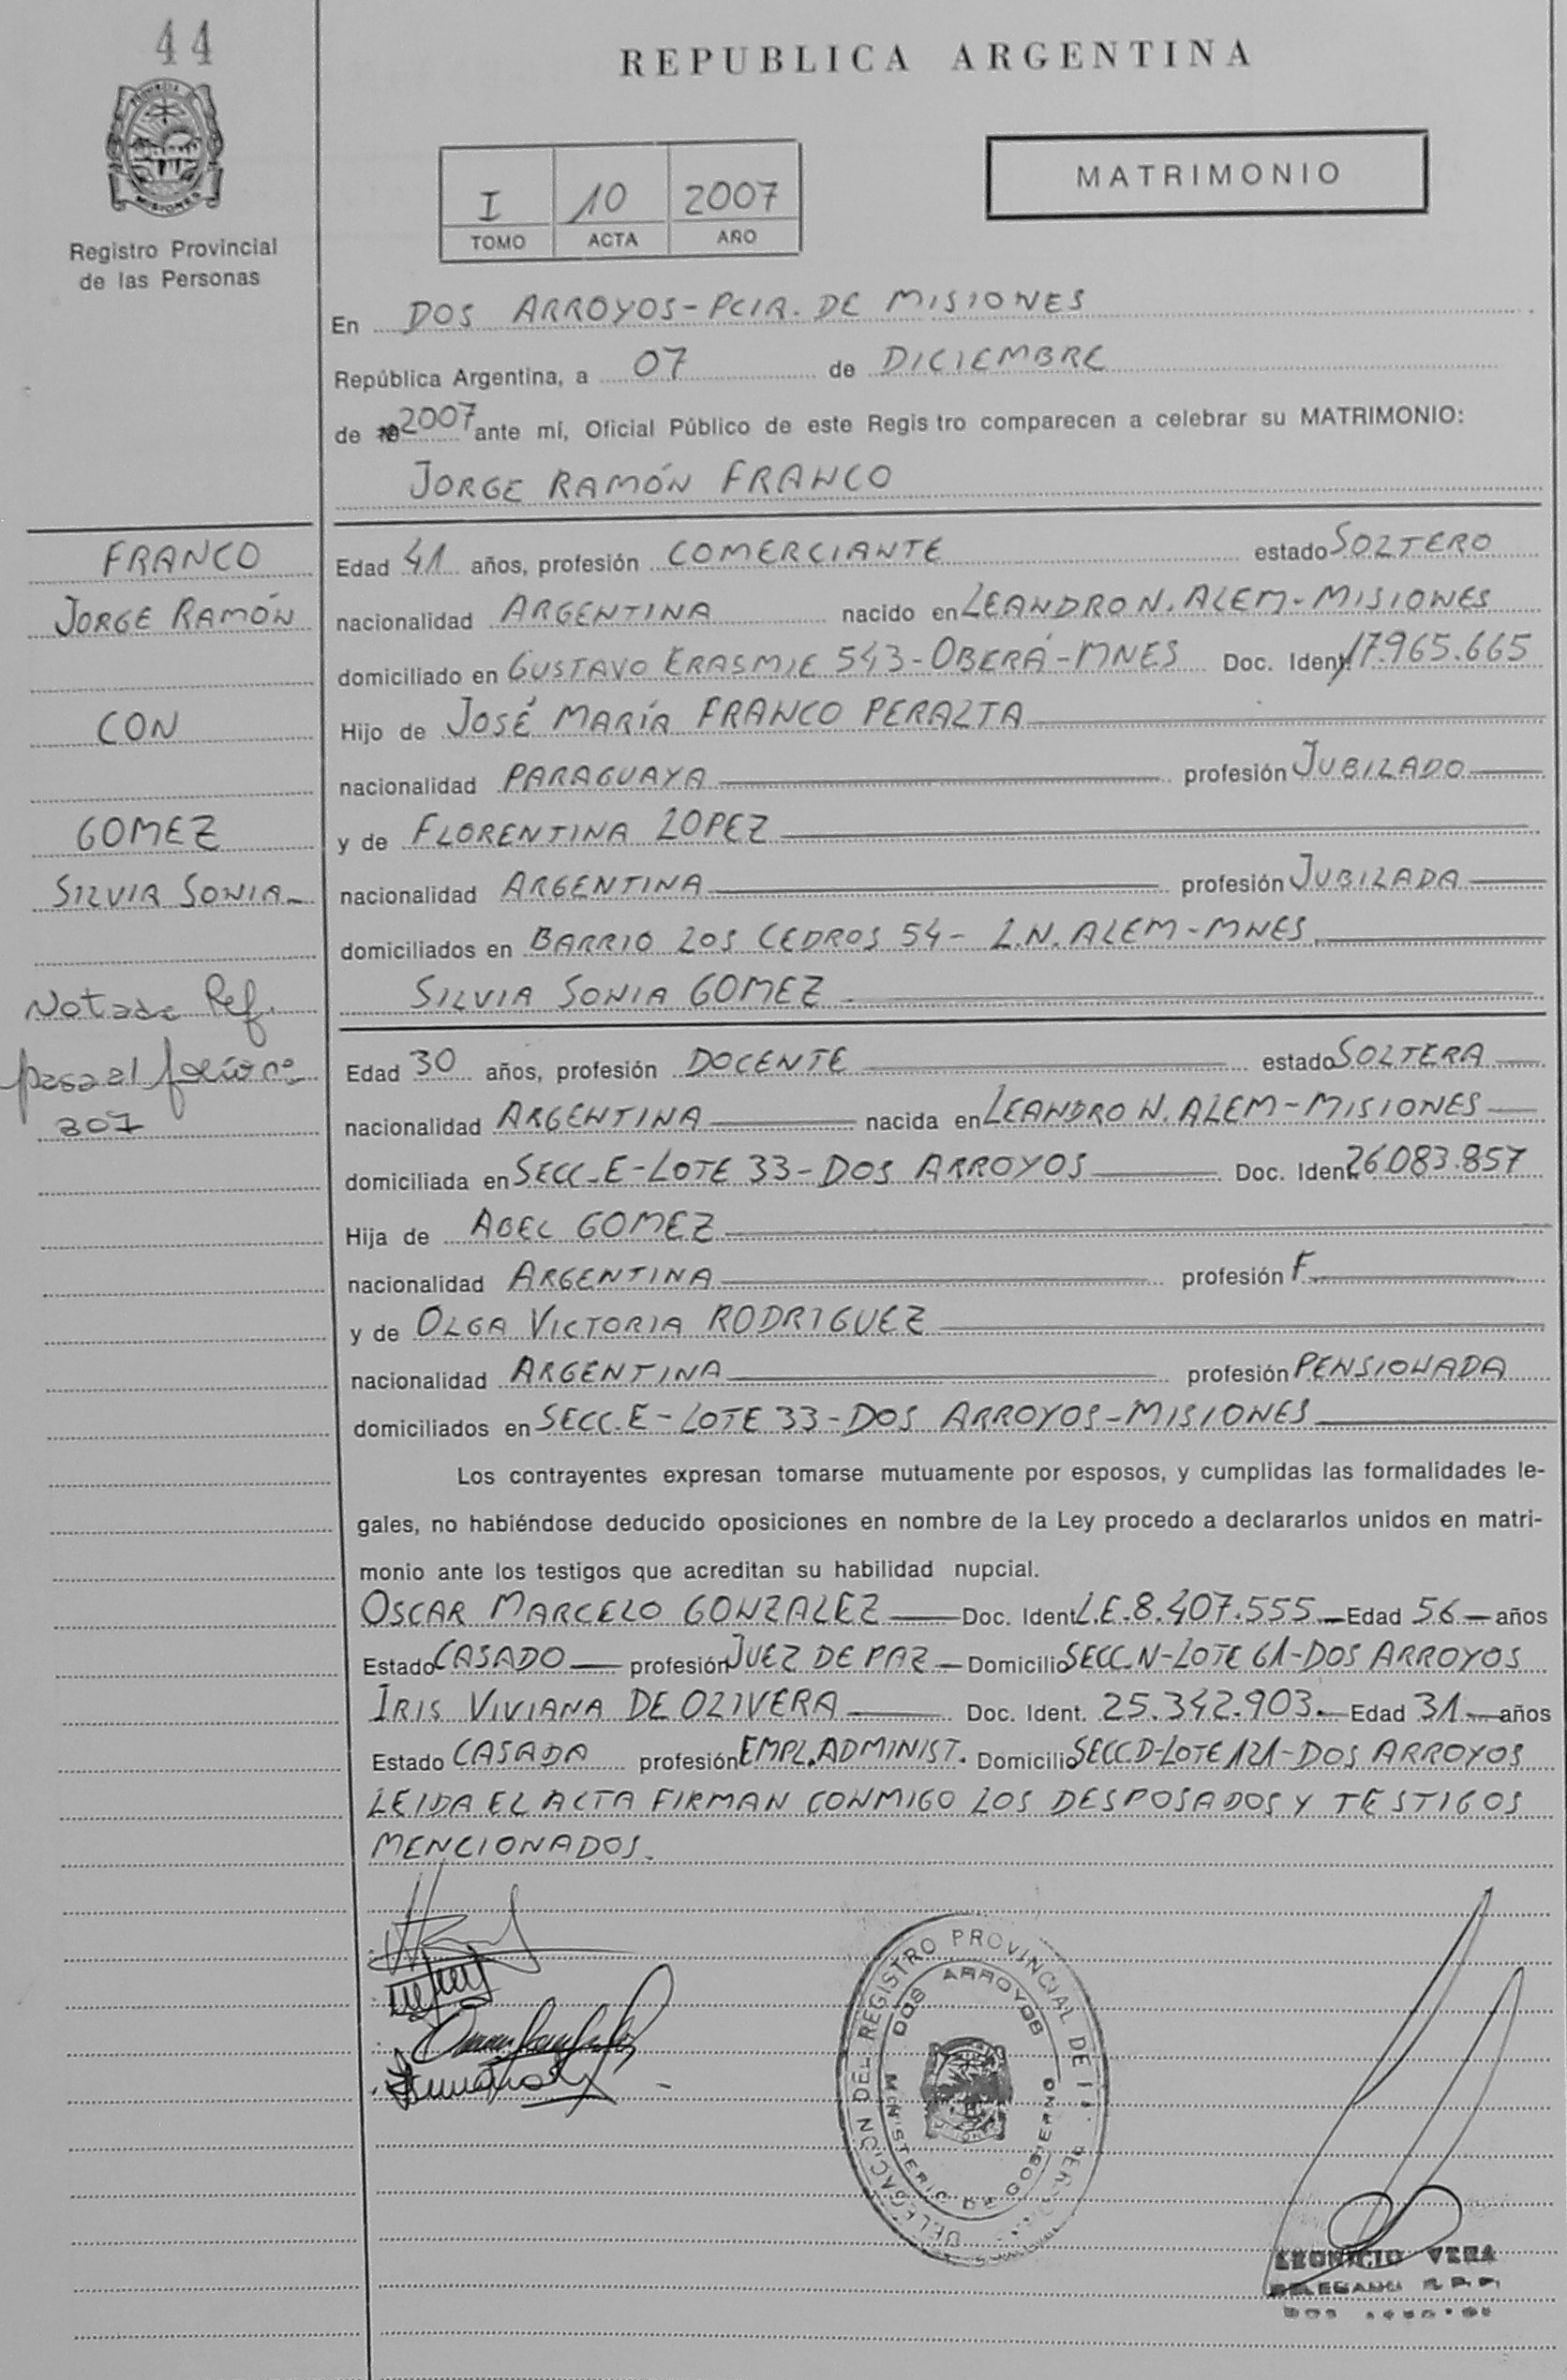 44
REPUBLICA ARGENTINA
PROVINCIA
MISIONES
Registro Provincial
de las Personas
I 10 2007
TOMO ACTA AÑO
MATRIMONIO
En DOS ARROYOS-PCIA. DE MISIONES
República Argentina, a 07 de DICIEMBRE
de 2007 ante mí, Oficial Público de este Regis tro comparecen a celebrar su MATRIMONIO:
JORGE RAMÓN FRANCO
FRANCO
JORGE RAMÓN
CON
GOMEZ
SILVIA SONIA-
Nota de Ref.
pasa al folio nº
307
Edad 41 años, profesión COMERCIANTE estado SOLTERO
nacionalidad ARGENTINA nacido en LEANDRO N. ALEM-MISIONES
domiciliado en GUSTAVO ERASMIE 543-OBERÁ-MNES Doc. Ident. 17.965.665
Hijo de JOSÉ MARÍA FRANCO PERALTA
nacionalidad PARAGUAYA profesión JUBILADO
y de FLORENTINA LOPEZ
nacionalidad ARGENTINA profesión JUBILADA
domiciliados en BARRIO LOS CEDROS 54- L.N. ALEM-MNES.
SILVIA SONIA GOMEZ.
Edad 30 años, profesión DOCENTE estado SOLTERA
nacionalidad ARGENTINA nacida en LEANDRO N. ALEM-MISIONES
domiciliada en SECC.E-LOTE 33-DOS ARROYOS Doc. Ident. 26.083.857
Hija de ABEL GOMEZ
nacionalidad ARGENTINA profesión F.
y de OLGA VICTORIA RODRIGUEZ
nacionalidad ARGENTINA profesión PENSIONADA
domiciliados en SECC.E-LOTE 33-DOS ARROYOS-MISIONES
Los contrayentes expresan tomarse mutuamente por esposos, y cumplidas las formalidades le-
gales, no habiéndose deducido oposiciones en nombre de la Ley procedo a declararlos unidos en matri-
monio ante los testigos que acreditan su habilidad nupcial.
OSCAR MARCELO GONZALEZ Doc. Ident. L.E.8.407.555 Edad 56 años
Estado CASADO profesión JUEZ DE PAZ Domicilio SECC.N-LOTE 61-DOS ARROYOS
IRIS VIVIANA DE OLIVERA Doc. Ident. 25.342.903. Edad 31 años
Estado CASADA profesión EMPL.ADMINIST. Domicilio SECC.D-LOTE 121-DOS ARROYOS
LEIDA EL ACTA FIRMAN CONMIGO LOS DESPOSADOS Y TESTIGOS
MENCIONADOS.
DELEGACIÓN DEL REGISTRO PROVINCIAL DE
DOS ARROYOS
MINISTERIO DE GOBIERNO
LEONICIO VERA
DELEGADO R.P.P.